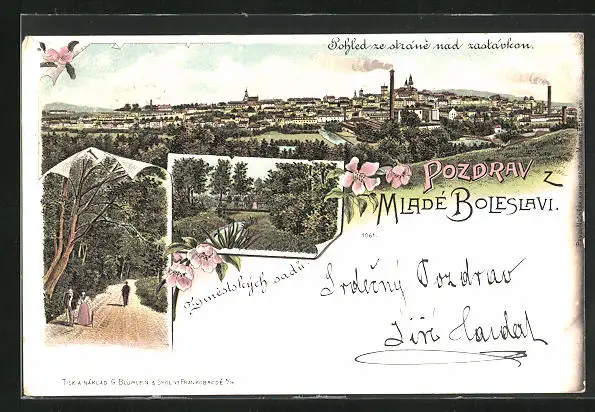 Pohled ze stráně nad zastávkou.
POZDRAV Z
MLADÉ BOLESLAVI.
1061.
Z městských sadů.
Srdečný Pozdrav
Jiří
TISK A NÁKLAD G. BLÜMLEIN & SPOL. VE FRANKOBRODĚ n/M